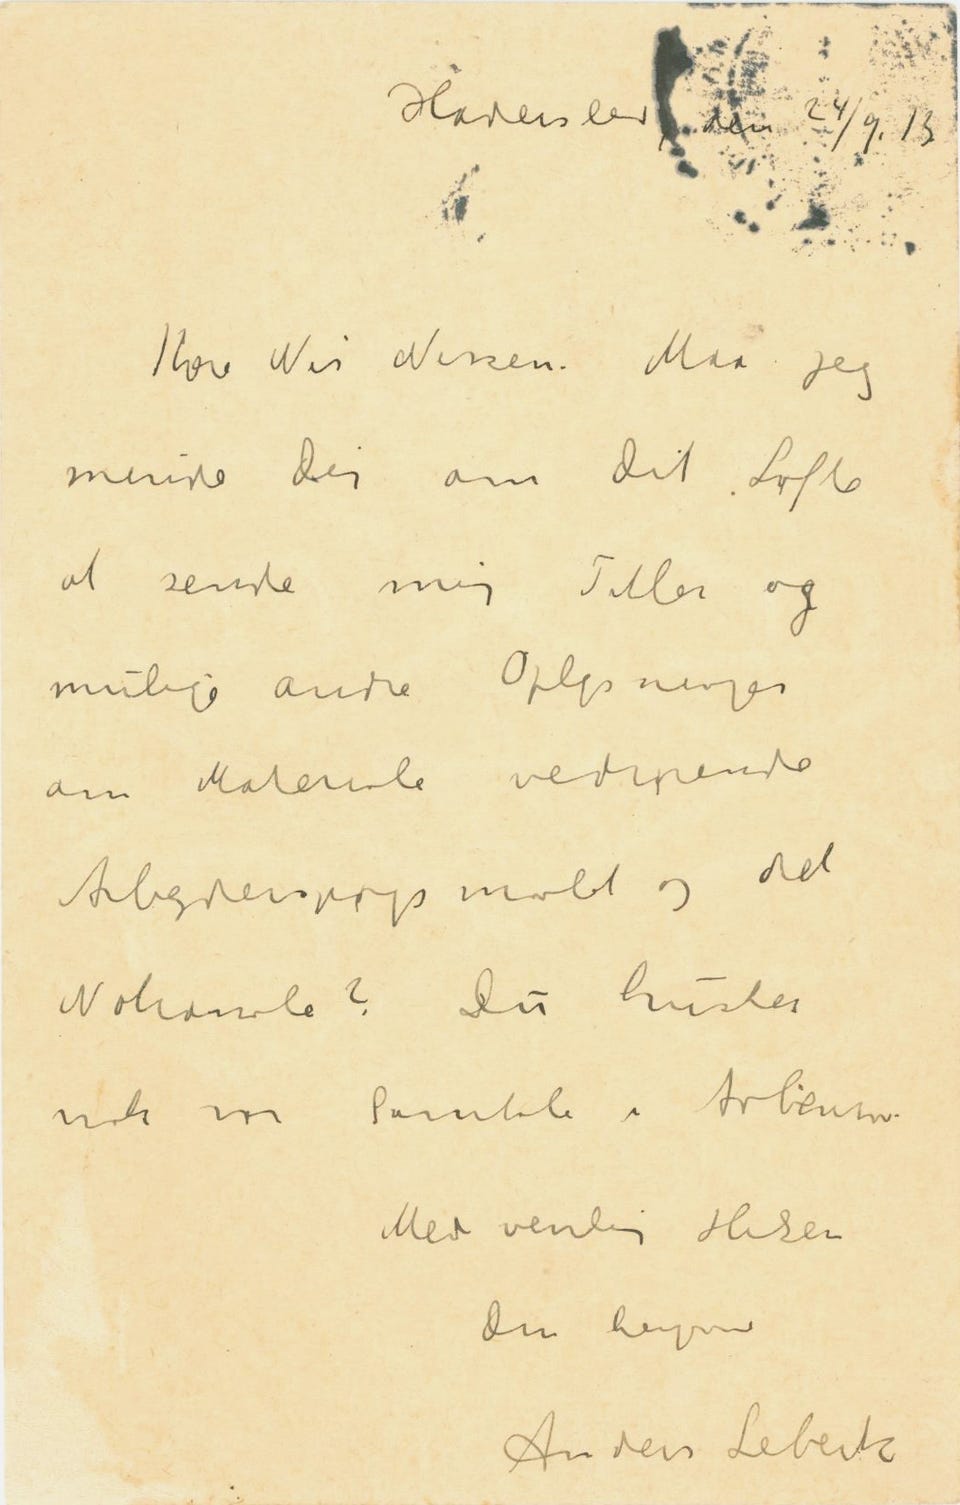 Haderslev, den 24/9. 13
Kære Nis Nissen. Maa jeg
minde Dig om Dit Løfte
at sende mig Titler og
mulige andre Oplysninger
om Materiale vedrørende
Arbejderspørgsmaalet og det
Nationale? Du husker
nok vor Samtale i Aabenraa.
Med venlig Hilsen
Din hengivne
Anders Lebeck